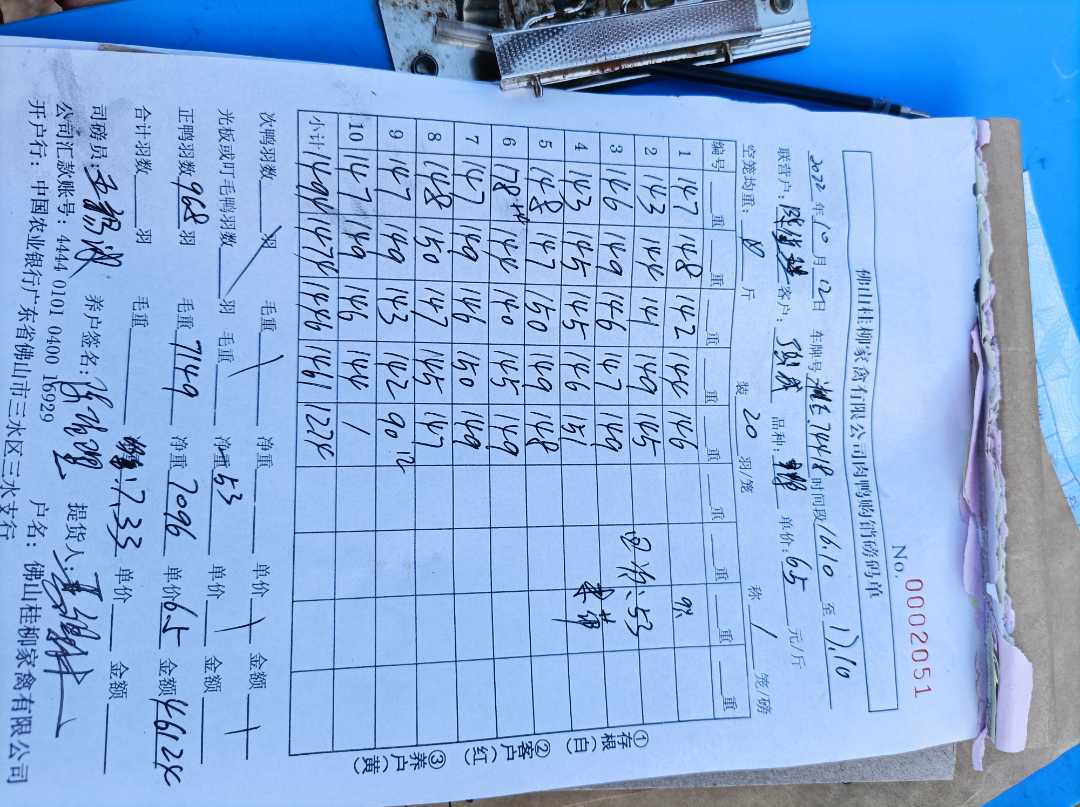 No. 0002051
佛山桂柳家禽有限公司肉鸭购销磅码单
2022年10月12日 车牌号 7448 时间段 16:10 至 17:10
联营户: 客户: 品种: 单价: 6.5 元/斤
空笼均重: 8 斤 装 20 羽/笼 称 1 笼/磅
编号 重 重 重 重 重 重 重 重 重
1 147 148 142 144 146
2 143 144 141 149 145
3 146 149 146 147 149
4 143 145 145 146 151
5 148 147 150 149 148
6 178 144 140 145 149
7 147 149 146 150 149
8 148 150 147 145 147
9 147 149 143 142 90 12
10 147 149 146 144 /
小计 1494 1474 1446 1461 1274
次鸭羽数 羽 毛重 净重 单价 金额
光板或打毛鸭羽数 羽 毛重 净重 53 单价 金额
正鸭羽数 968 羽 毛重 7149 净重 7096 单价 6.5 金额 46124
合计羽数 羽 毛重 7.33 单价 金额
司磅员: 养户签名: 提货人:
公司汇款账号: 4444 0101 0400 16929 户名: 佛山桂柳家禽有限公司
开户行: 中国农业银行广东省佛山市三水区三水支行
①存根(白) ②客户(红) ③养户(黄)